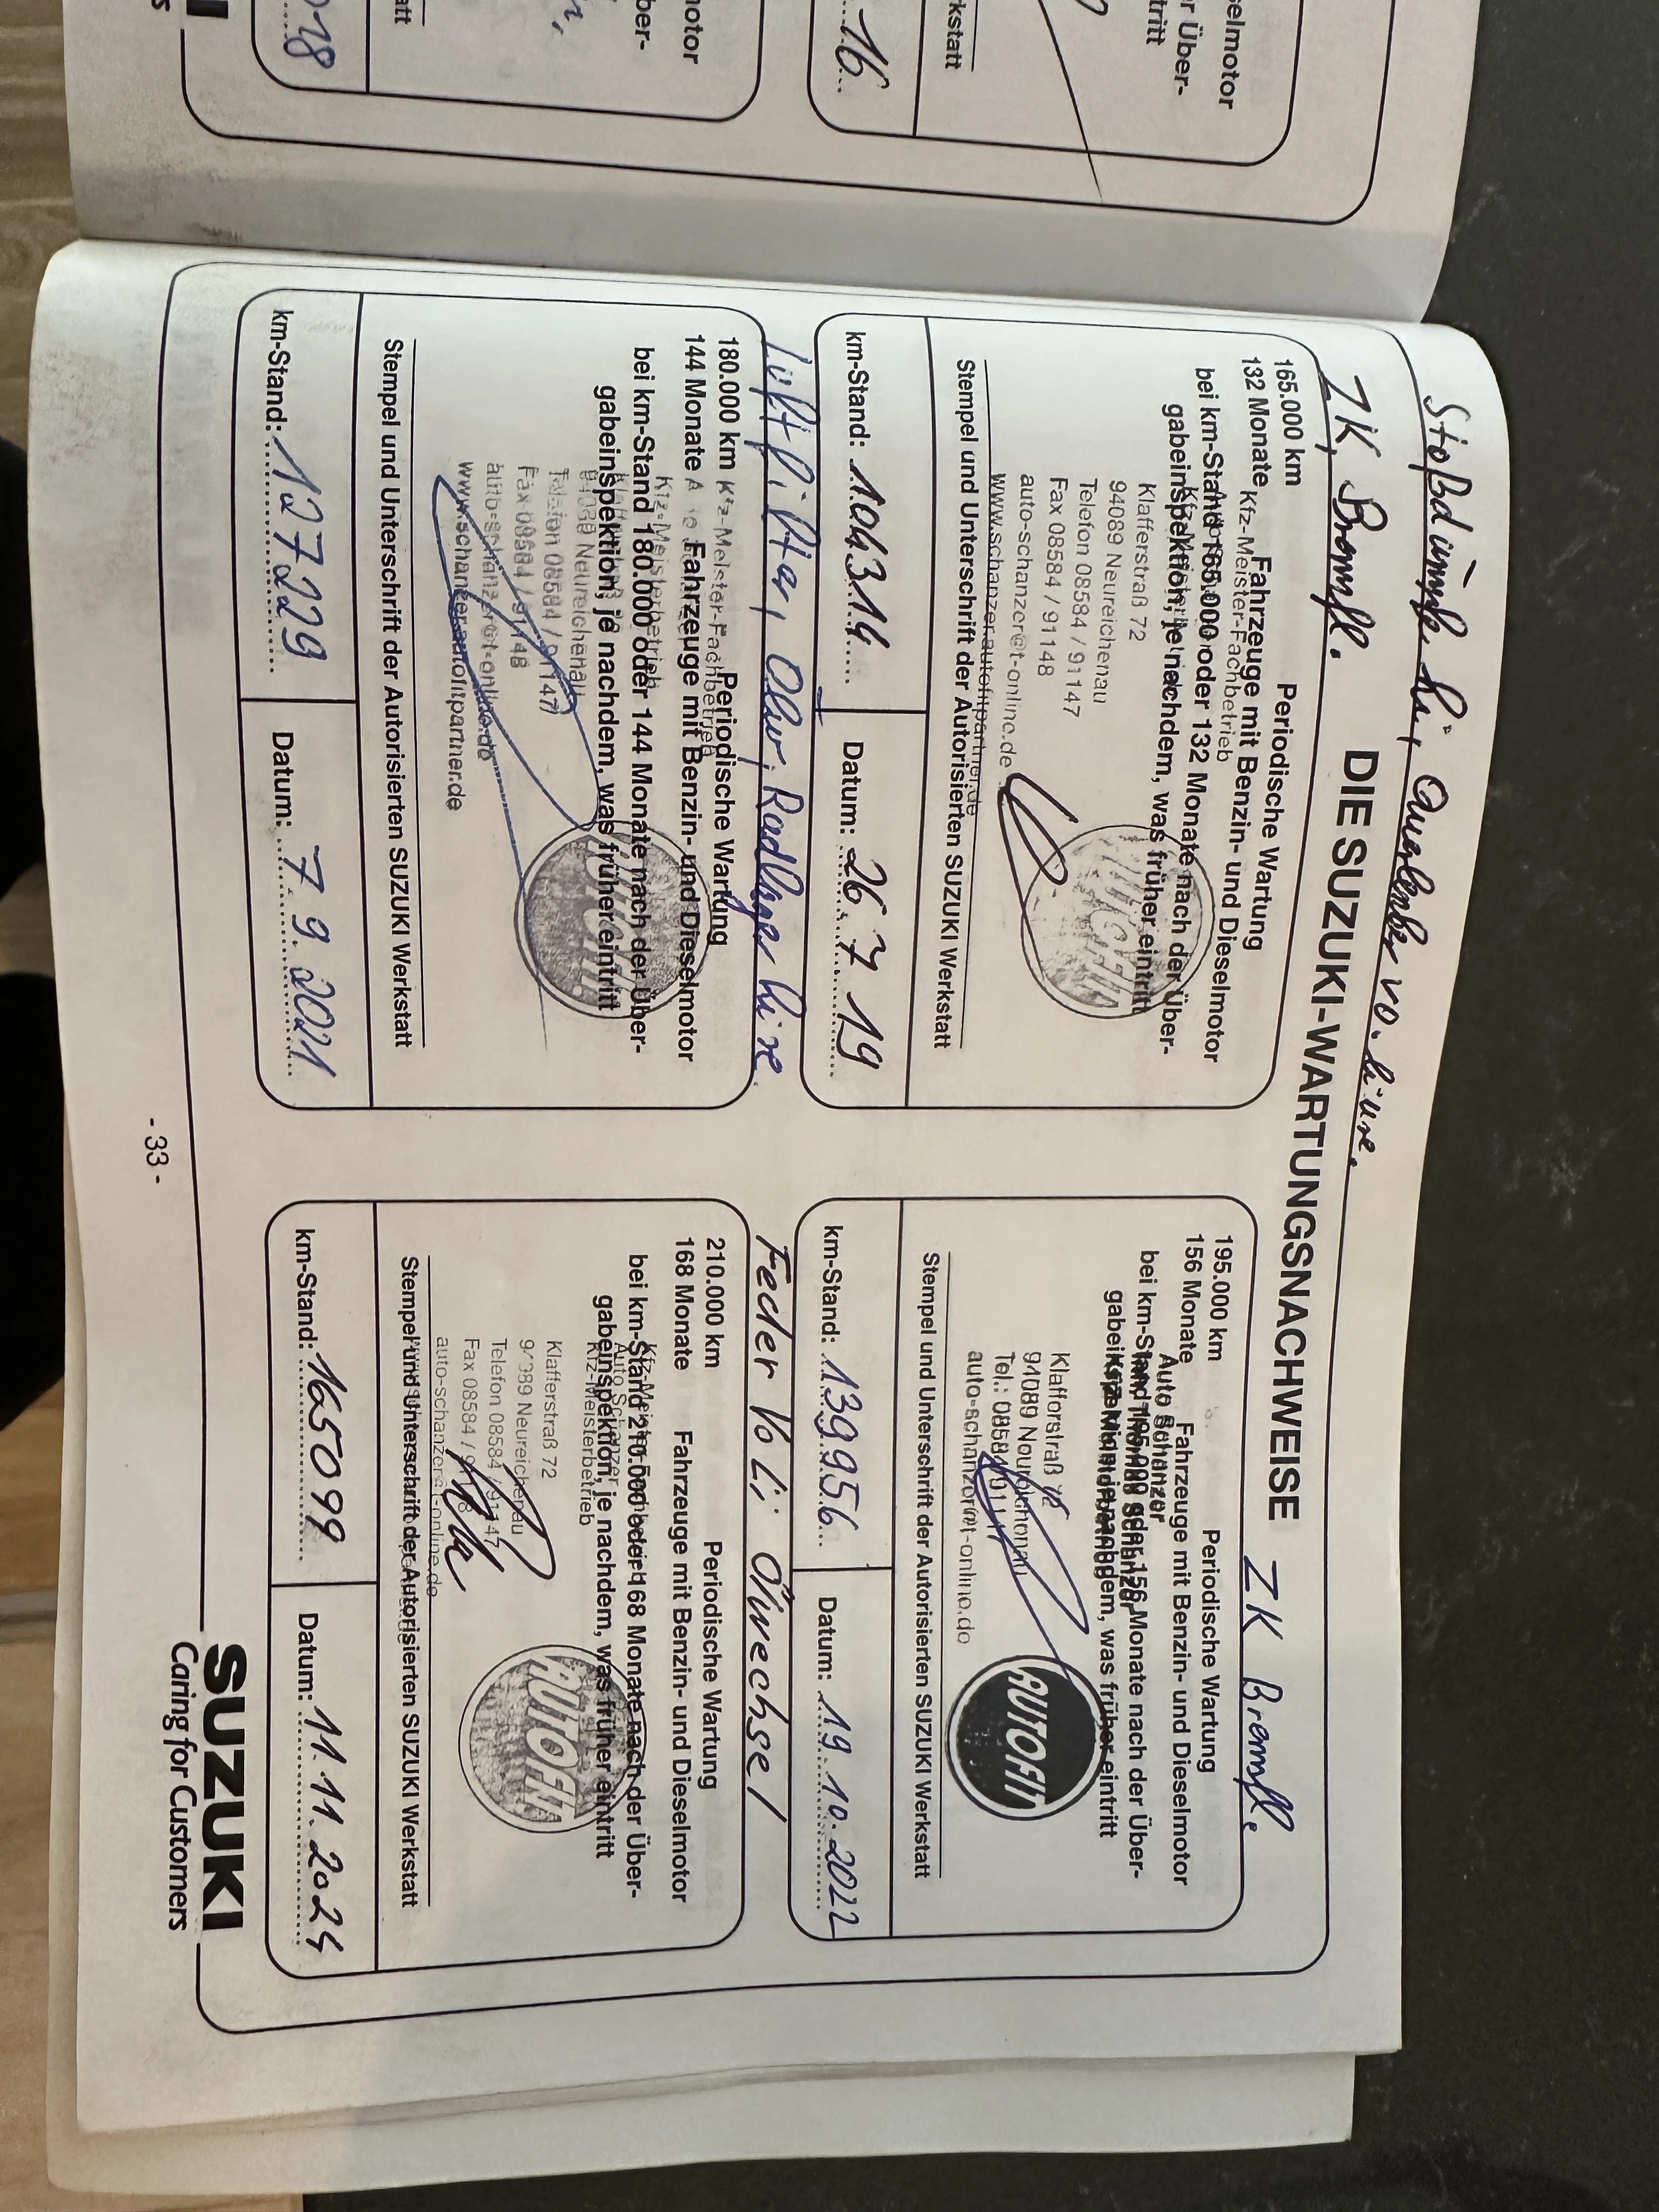 Stoßdämpfer hi, Querlenker vo. li u re.
ZK, Bremsfl.
DIE SUZUKI-WARTUNGSNACHWEISE ZK Bremsfl.
165.000 km Periodische Wartung
132 Monate Fahrzeuge mit Benzin- und Dieselmotor
Kfz-Meister-Fachbetrieb
bei km-Stand 165.000 oder 132 Monate nach der Über-
gabeinspektion, je nachdem, was früher eintritt
Klafferstraß 72
94089 Neureichenau
Telefon 08584 / 91147
Fax 08584 / 91148
auto-schanzer@t-online.de
www.schanzer.autofitpartner.de
Stempel und Unterschrift der Autorisierten SUZUKI Werkstatt
km-Stand: 104314 Datum: 26.7.19
Luftfilter, Ölw, Radlager hi re
180.000 km Periodische Wartung
Kfz-Meister-Fachbetrieb
144 Monate Fahrzeuge mit Benzin- und Dieselmotor
Kfz-Meisterbetrieb
bei km-Stand 180.000 oder 144 Monate nach der Über-
gabeinspektion, je nachdem, was früher eintritt
94089 Neureichenau
Telefon 08584 / 91147
Fax 08584 / 91148
auto-schanzer@t-online.de
www.schanzer.autofitpartner.de
Stempel und Unterschrift der Autorisierten SUZUKI Werkstatt
km-Stand: 127229 Datum: 7.9.2021
195.000 km Periodische Wartung
156 Monate Fahrzeuge mit Benzin- und Dieselmotor
Auto Schanzer
bei km-Stand 195.000 oder 156 Monate nach der Über-
gabeinspektion, je nachdem, was früher eintritt
Klafferstraß 72
94089 Neureichenau
Tel.: 08584/91147
auto-schanzer@t-online.de
AUTOfit
Stempel und Unterschrift der Autorisierten SUZUKI Werkstatt
km-Stand: 139956 Datum: 19.10.2022
Feder Vo Li Ölwechsel
210.000 km Periodische Wartung
168 Monate Fahrzeuge mit Benzin- und Dieselmotor
bei km-Stand 210.000 oder 168 Monate nach der Über-
Auto Schanzer
gabeinspektion, je nachdem, was früher eintritt
Kfz-Meisterbetrieb
Klafferstraß 72
94089 Neureichenau
Telefon 08584 / 91147
Fax 08584 / 91148
auto-schanzer@t-online.de
AUTOfit
Stempel und Unterschrift der Autorisierten SUZUKI Werkstatt
km-Stand: 165099 Datum: 11.11.2024
- 33 -
SUZUKI
Caring for Customers
elmotor
r Über-
tritt
kstatt
16
otor
ber-
att
018